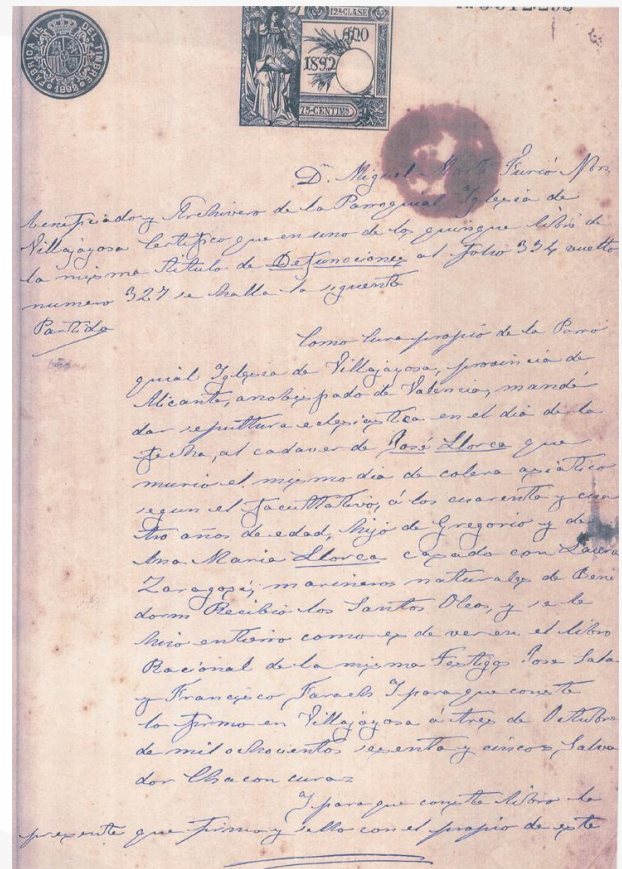 FABRICA NL. DEL TIMBRE
12ª CLASE
1892
75-CENTIMS
Dn. Miguel Martí Furió Pbro.
beneficiado y Archivero de la Parroquial Iglesia de
Villajoyosa Certifico que en uno de los quinque libris de
la misma titulo de Defunciones al folio 334 vuelto
numero 327 se halla la siguente
Partida
Como Cura propio de la Parro
quial Iglesia de Villajoyosa, provincia de
Alicante, arzobispado de Valencia, mandé
dar sepultura eclesiastica en el dia de la
fecha, al cadaver de José Llorca que
murio el mismo dia de colera asiatico
segun el facultativo, á los cuarenta y cua
tro años de edad, hijo de Gregorio y de
Ana Maria Llorca casado con
Zaragozí, marineros naturales de Beni
dorm Recibio los Santos Oleos, y se le
hizo entierro como es de ver en el libro
Racional de la misma Testigos Jose Lala
y Francisco Farach Y para que conste
lo firmo en Villajoyosa á tres de Octubre
de mil ochocientos sesenta y cinco = Salva
dor Chacon cura =
Y para que conste libro la
presente que firmo y sello con el propio de este